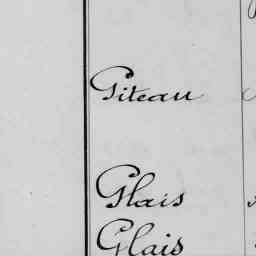 Piteau
Glais
Glais